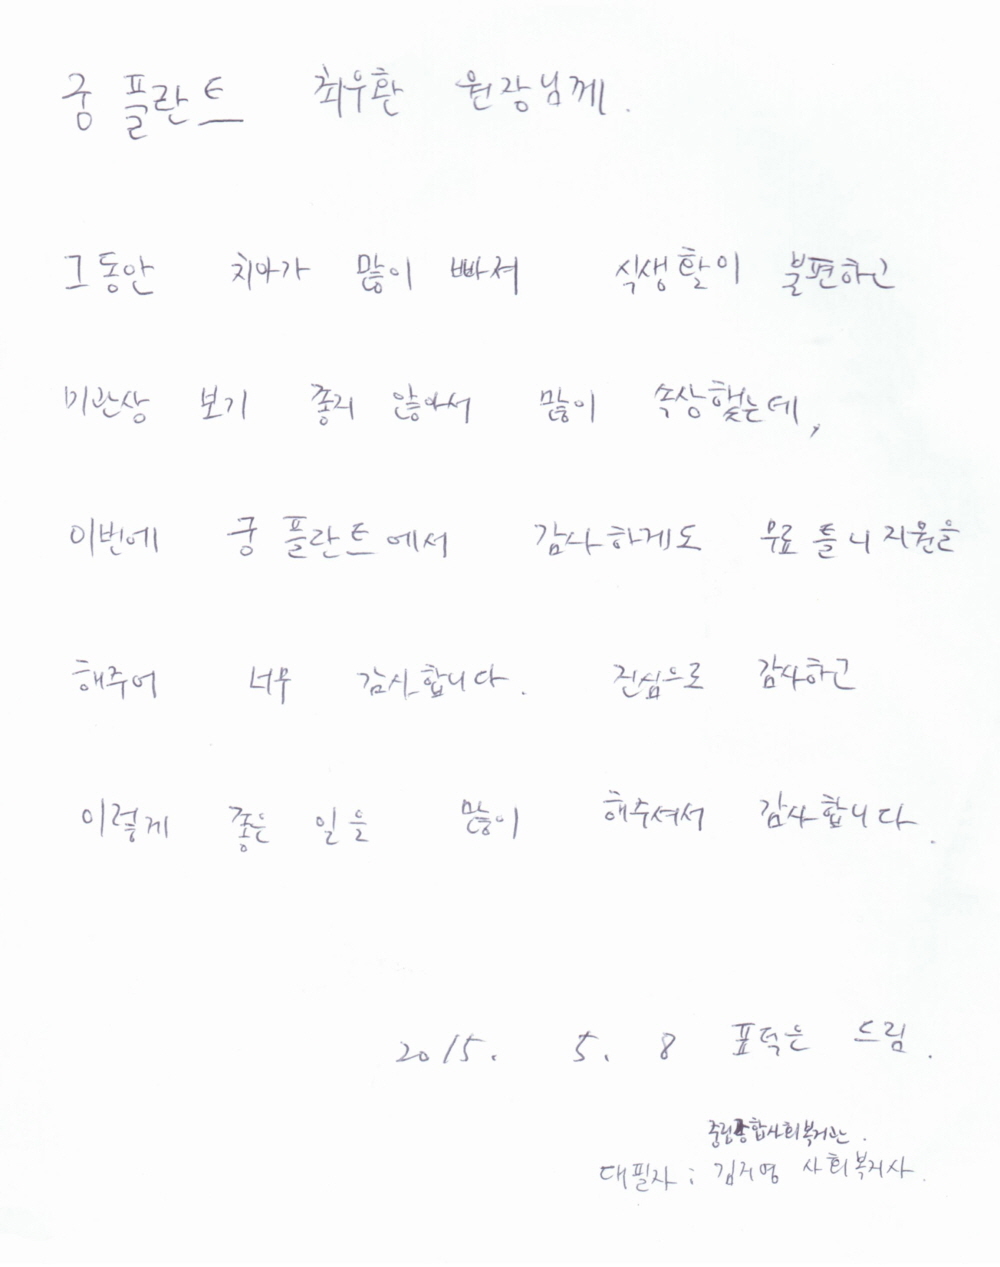 궁 플란트 최우환 원장님께.
그동안 치아가 많이 빠져 식생활이 불편하고
미관상 보기 좋지 않아서 많이 속상했는데,
이번에 궁 플란트에서 감사하게도 무료 틀니 지원을
해주어 너무 감사합니다. 진심으로 감사하고
이렇게 좋은 일을 많이 해주셔서 감사합니다.
2015. 5. 8 표덕은 드림.
중림종합사회복지관.
대필자 : 김지영 사회복지사.